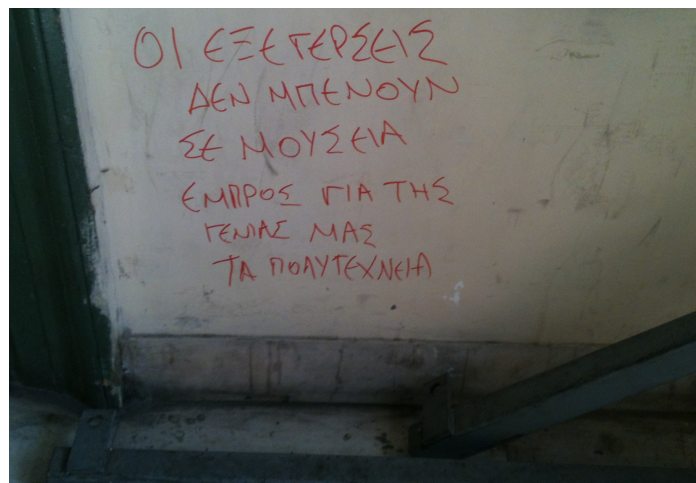 ΟΙ ΕΞΕΓΕΡΣΕΙΣ
ΔΕΝ ΜΠΕΝΟΥΝ
ΣΕ ΜΟΥΣΕΙΑ
ΕΜΠΡΟΣ ΓΙΑ ΤΗΣ
ΓΕΝΙΑΣ ΜΑΣ
ΤΑ ΠΟΛΥΤΕΧΝΕΙΑ